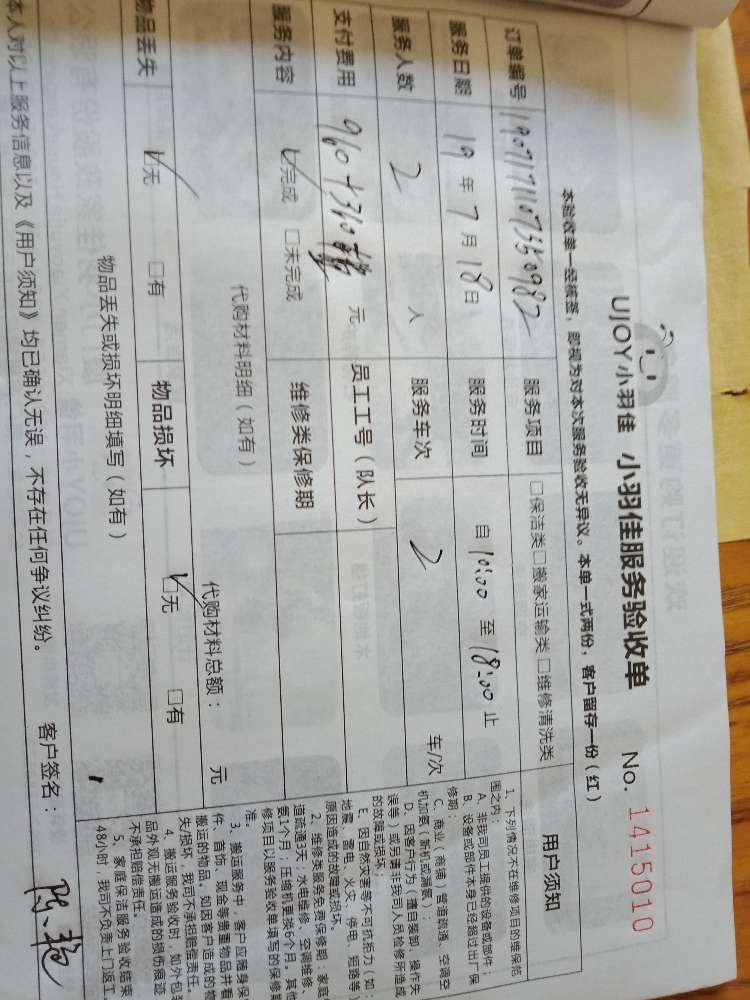 UJOY小羽佳 小羽佳服务验收单 No. 1415010
本验收单一经核签，即视为对本次服务验收无异议。本单一式两份，客户留存一份（红）
订单编号 服务项目 □保洁类□搬家运输类□维修清洗类
服务日期 19 年 7 月 18 日 服务时间 自 10:00 至 18:00 止
服务人数 2 人 服务车次 2 车/次
支付费用 960+310 元 员工工号（队长）
服务内容 ☑完成 □未完成 维修类保修期
代购材料明细（如有） 代购材料总额： 元
物品丢失 ☑无 □有 物品损坏 ☑无 □有
物品丢失或损坏明细填写（如有）
本人对以上服务信息以及《用户须知》均已确认无误，不存在任何争议纠纷。 客户签名：
用户须知
1、下列情况不在维修项目的维保范
围之内：
A、非我司员工提供的设备或部件；
B、设备或部件本身已经超过出厂保
修期；
C、商业（商铺）管道疏通、空调空
机加氨（新机或漏氨）；
D、因客户行为（擅自装卸、操作失
误等）或另请非我司人员检修所造成
的故障或损坏
E、因自然灾害等不可抗拒力（如：
地震、雷电、火灾、停电、短路等）
原因造成的故障或损坏。
2、维修类服务免费保修期：家庭
道疏通3天；水电维修、空调维修、
第1个月；压缩机更换6个月。其他
修项目以服务验收单填写的保修期
准。
3、搬运服务中，客户应随身保
件、首饰、现金等贵重物品并看
搬运的物品。如因客户造成的物
失/损坏，我司不承担赔偿责任。
4、搬运服务验收时，如外包装
品外观无搬运造成的损伤痕迹
不承担赔偿责任。
5、家庭保洁服务验收结束
48小时，我司不负责上门返工。